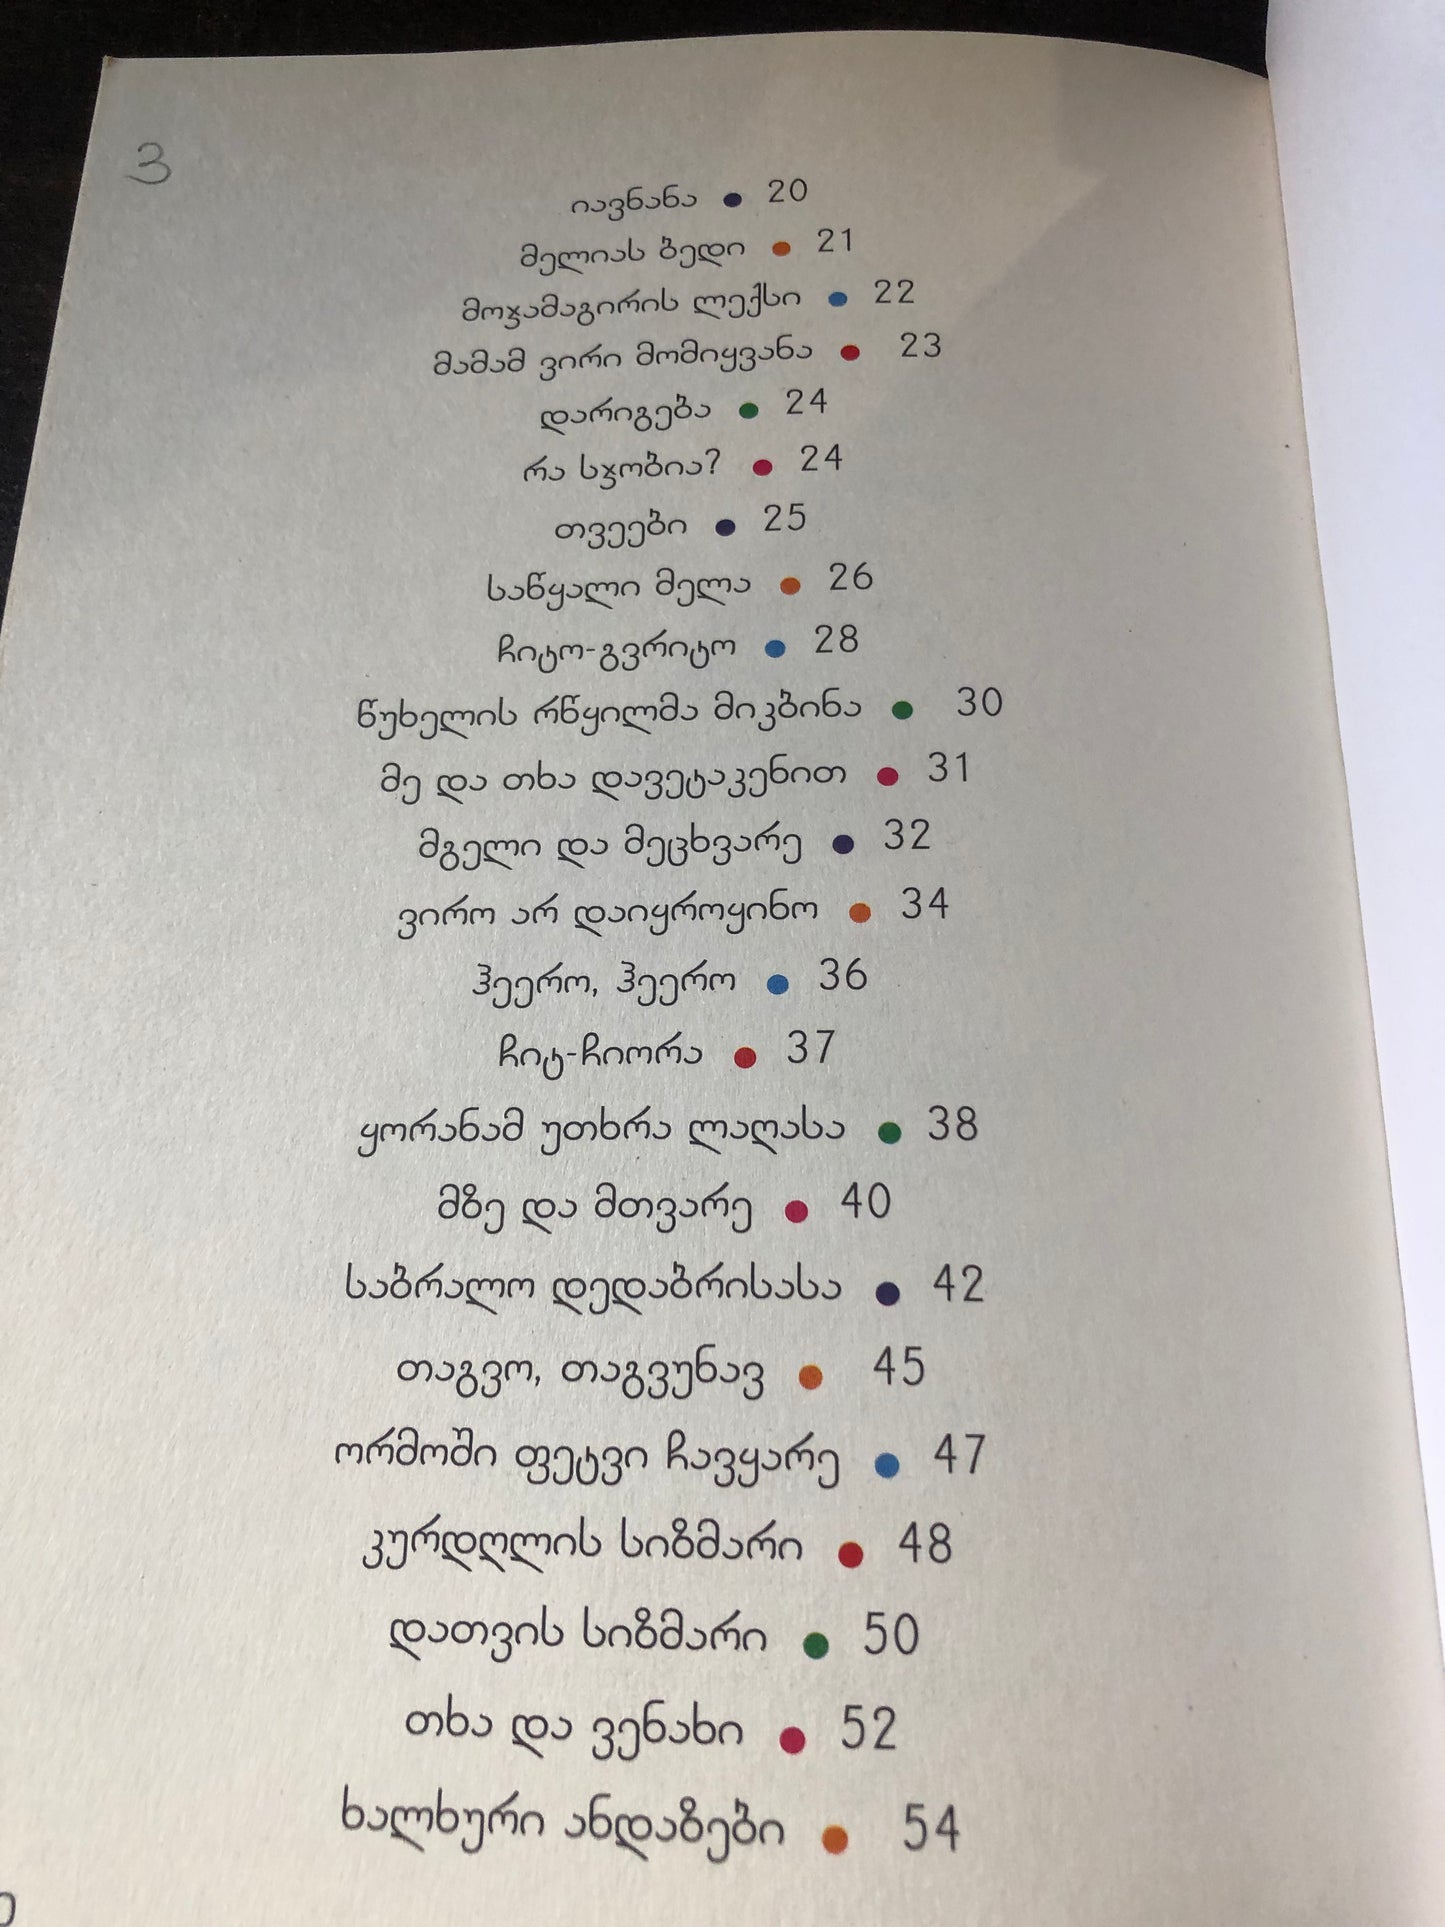 3
იავნანა • 20
მელიას ბედი • 21
მოჯამაგირის ლექსი • 22
მამამ ვირი მომიყვანა • 23
დარიგება • 24
რა სჯობია? • 24
თვეები • 25
საწყალი მელა • 26
ჩიტო-გვრიტო • 28
წუხელის რწყილმა მიკბინა • 30
მე და თხა დავეტაკენით • 31
მგელი და მეცხვარე • 32
ვირო არ დაიყროყინო • 34
ჰეერო, ჰეერო • 36
ჩიტ-ჩიორა • 37
ყორანამ უთხრა ლაღასა • 38
მზე და მთვარე • 40
საბრალო დედაბრისასა • 42
თაგვო, თაგვუნავ • 45
ორმოში ფეტვი ჩავყარე • 47
კურდღლის სიზმარი • 48
დათვის სიზმარი • 50
თხა და ვენახი • 52
ხალხური ანდაზები • 54